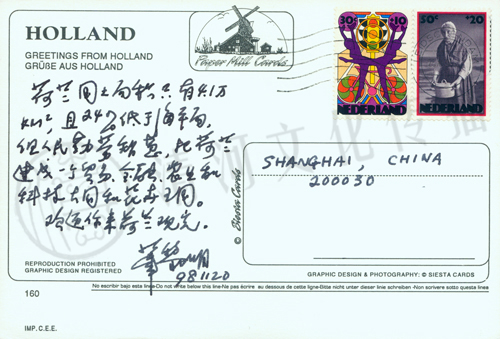 HOLLAND
GREETINGS FROM HOLLAND
GRÜßE AUS HOLLAND
Paper Mill Cards
30c +10
NEDERLAND
50c +20
NEDERLAND
荷兰国之面积只有4.1万
km², 且24%低于海平面,
但人民勤劳智慧, 把荷兰
建成一个贸易、金融、农业和
科技大国和花卉王国。
欢迎你来荷兰观光。
981120
SHANGHAI, CHINA
200030
© Siesta Cards
REPRODUCTION PROHIBITED
GRAPHIC DESIGN REGISTERED
GRAPHIC DESIGN & PHOTOGRAPHY: © SIESTA CARDS
No escribir bajo esta line-Do not write below this line-Ne pas écrire au dessous de cette ligne-Bitte nicht unter dieser linie schreiben -Non scrivere sotto questa linea
160
IMP. C.E.E.